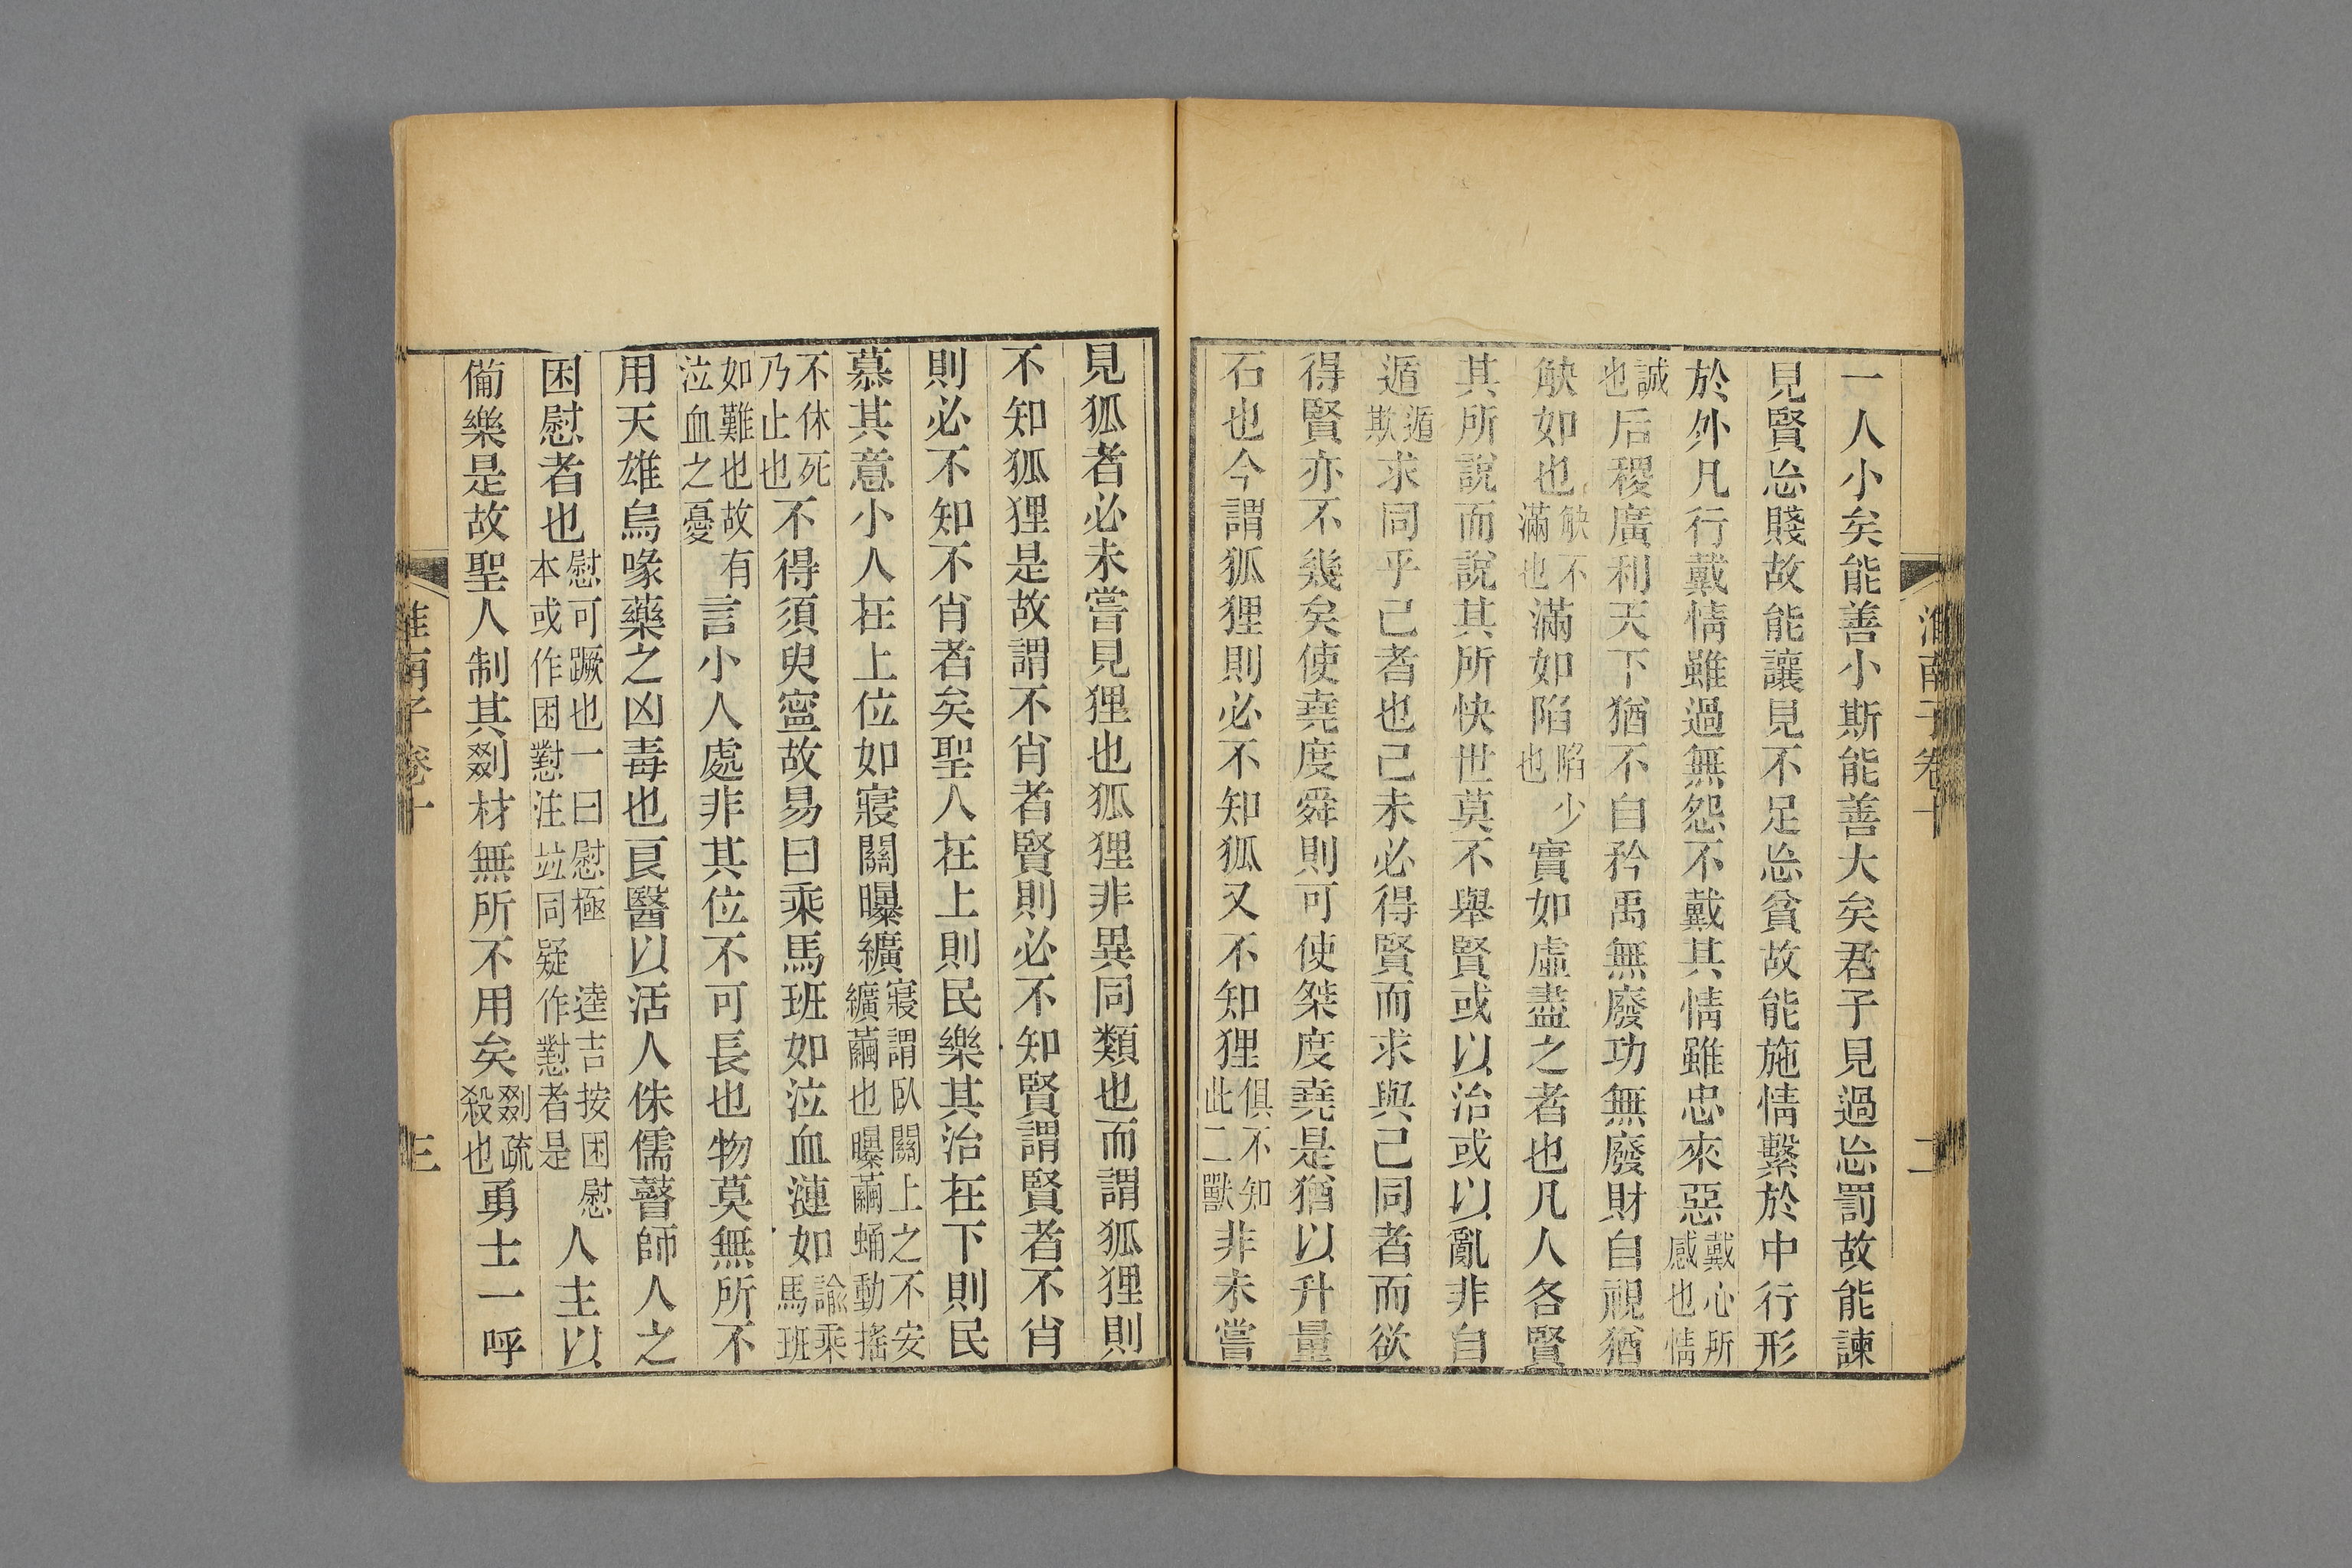 淮南子卷十 二
一人小矣能善小斯能善大矣君子見過㤀罰故能諫
見賢㤀賤故能讓見不足㤀貧故能施情繫於中行形
於外凡行戴情雖過無怨不戴其情雖忠來惡戴心所感也情
誠也后稷廣利天下猶不自矜禹無廢功無廢財自視猶
觖如也觖不滿也滿如陷陷少也實如虛盡之者也凡人各賢
其所說而說其所快世莫不舉賢或以治或以亂非自
遁遁欺求同乎己者也己未必得賢而求與己同者而欲
得賢亦不幾矣使堯度舜則可使桀度堯是猶以升量
石也今謂狐狸則必不知狐又不知狸俱不知此二獸非未嘗
見狐者必未嘗見狸也狐狸非異同類也而謂狐狸則
不知狐狸是故謂不肖者賢則必不知賢謂賢者不肖
則必不知不肖者矣聖人在上則民樂其治在下則民
慕其意小人在上位如寢關曝纊寢謂臥關上之不安纊繭也曝繭蛹動搖
不休死乃止也不得須臾寧故易曰乘馬班如泣血漣如諭乘馬班
如難也故有泣血之憂言小人處非其位不可長也物莫無所不
用天雄烏喙藥之凶毒也良醫以活人侏儒瞽師人之
困慰者也慰可蹶也一曰慰極 逵吉按困慰本或作困懟注竝同疑作懟者是人主以
備樂是故聖人制其剟材無所不用矣剟疏殺也勇士一呼
淮南子卷十 三